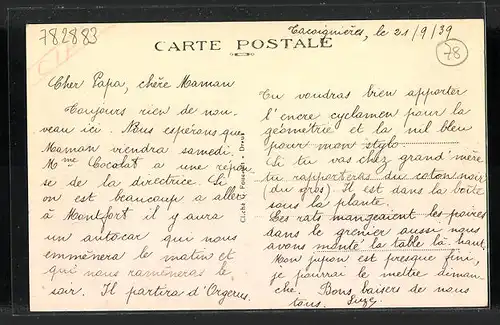 782883
Tacoignières, le 21/9/39
CARTE POSTALE
78
Cher Papa, chère Maman
Toujours rien de nou-
veau ici. Nous espérons que
Maman viendra samedi.
Mme Cocolat a une répon
se de la directrice. Si
on est beaucoup a aller
à Montfort il y aura
un autocar qui nous
emmènera le matin et
qui nous ramènera le
soir. Il partira d'Orgerus.
Cliché G. Foucault, Dreux
Tu voudras bien apporter
l'encre cyclamen pour la
géométrie et la nil bleu
pour mon stylo
Si tu vas chez grand'mère
tu rapporteras du coton noir
(du gros). Il est dans la boîte
sous la plante.
Les rats mangeaient les poires
dans le grenier aussi nous
avons monté la table là haut.
Mon jupon est presque fini,
je pourrai le mettre diman
che. Bons baisers de nous
tous. Suze